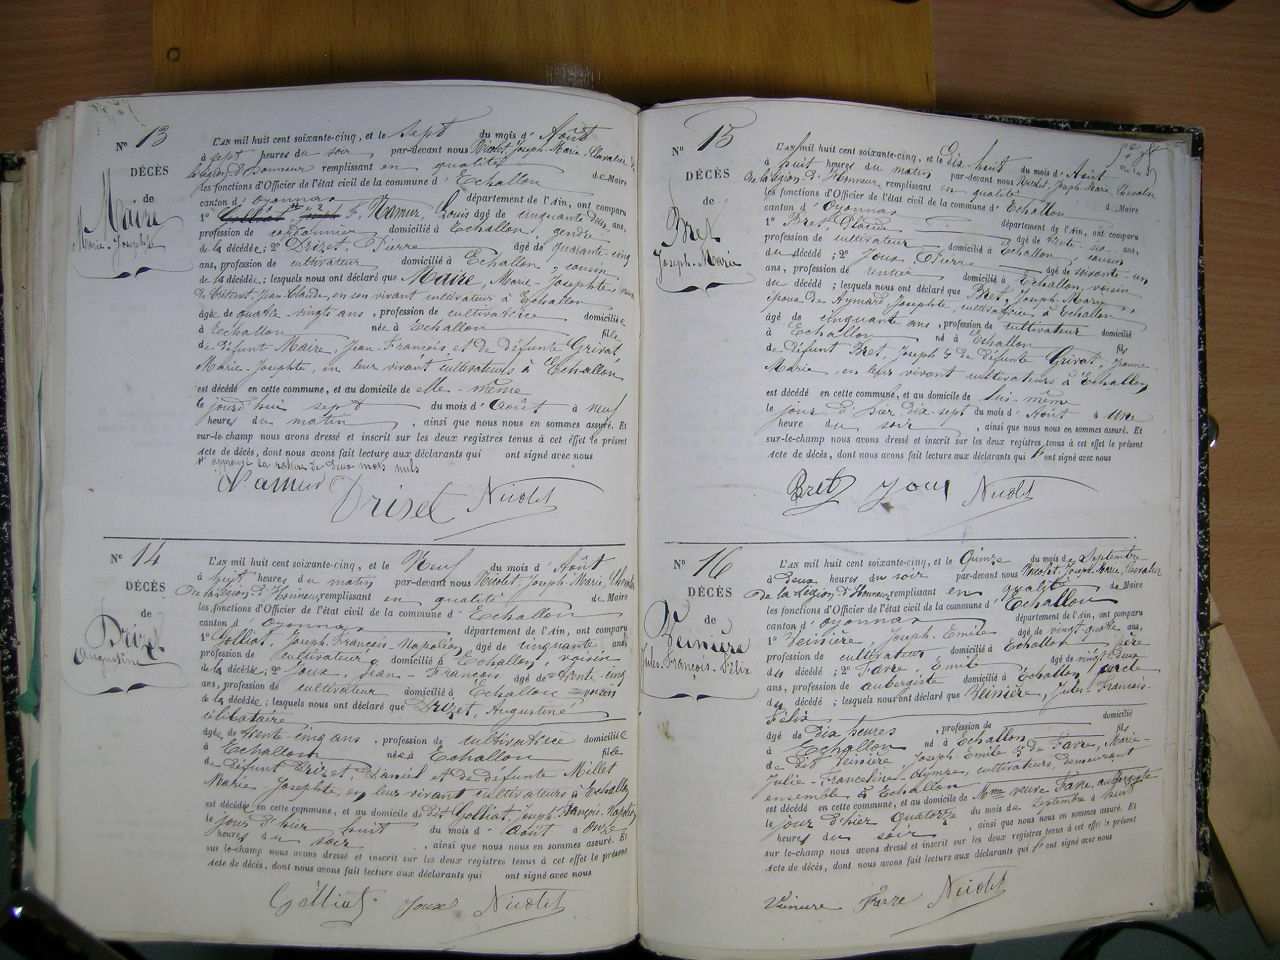 N° 13
DÉCÈS
de
Maire
Marie-Josephte
L'AN mil huit cent soixante-cinq, et le sept du mois d'Août
à sept heures du soir par-devant nous Nicolet, Joseph-Marie, Chevalier de
la Légion d'Honneur remplissant en qualité de Maire
les fonctions d'Officier de l'état civil de la commune d'Echallon
canton d'Oyonnax département de l'Ain, ont comparu
1° F. Namur, Louis âgé de cinquante deux ans,
profession de cordonnier domicilié à Echallon, gendre
de la décédée; 2° Drizet, Pierre âgé de quarante-cinq
ans, profession de cultivateur domicilié à Echallon, voisin
de la décédée; lesquels nous ont déclaré que Maire, Marie-Josephte, veuve
de Jean-Claude, en son vivant cultivateur à Echallon
âgée de quatre-vingts ans, profession de cultivatrice domiciliée
à Echallon née à Echallon fille
de défunt Maire, Jean-François et de défunte Grivat,
Marie-Josephte, en leur vivant cultivateurs à Echallon
est décédé en cette commune, et au domicile de elle-même
le jourd'hui sept du mois d'Août à neuf
heures du matin, ainsi que nous nous en sommes assuré. Et
sur-le-champ nous avons dressé et inscrit sur les deux registres tenus à cet effet le présent
acte de décès, dont nous avons fait lecture aux déclarants qui ont signé avec nous
la rature de deux mots nuls
Namur Drizet Nicolet
N° 14
DÉCÈS
de
Drizet
Augustine
L'AN mil huit cent soixante-cinq, et le Neuf du mois d'Août
à sept heures du matin par-devant nous Nicolet, Joseph-Marie, Chevalier
de la Légion d'Honneur, remplissant en qualité de Maire
les fonctions d'Officier de l'état civil de la commune d'Echallon
canton d'Oyonnax département de l'Ain, ont comparu
1° Golliat, Joseph-François-Napoléon âgé de cinquante ans,
profession de cultivateur domicilié à Echallon, voisin
de la décédée; 2° Joux, Jean-François âgé de trente-cinq
ans, profession de cultivateur domicilié à Echallon voisin
de la décédée; lesquels nous ont déclaré que Drizet, Augustine
célibataire
âgée de trente-cinq ans, profession de cultivatrice domiciliée
à Echallon née à Echallon fille
de défunt Drizet, Daniel et de défunte Millet
Marie Josephte, en leur vivant cultivateurs à Echallon
est décédée en cette commune, et au domicile de dit Golliat, Joseph-François-Napoléon
le jour d'hier huit du mois d'Août à onze
heures du soir, ainsi que nous nous en sommes assuré. Et
sur-le-champ nous avons dressé et inscrit sur les deux registres tenus à cet effet le présent
acte de décès, dont nous avons fait lecture aux déclarants qui ont signé avec nous
Golliat Joux Nicolet
N° 15
DÉCÈS
de
Bret
Joseph-Marie
L'AN mil huit cent soixante-cinq, et le dix-huit du mois d'Août
à huit heures du matin par-devant nous Nicolet, Joseph-Marie Chevalier
de la Légion d'Honneur, remplissant en qualité de Maire
les fonctions d'Officier de l'état civil de la commune d'Echallon
canton d'Oyonnax département de l'Ain, ont comparu
1° Bret, Claude âgé de trente-un ans,
profession de cultivateur domicilié à Echallon, cousin
du décédé; 2° Joux Pierre âgé de soixante-un
ans, profession de rentier domicilié à Echallon, voisin
du décédé; lesquels nous ont déclaré que Bret, Joseph-Marie
époux de Aymard Josephte, cultivatrice à Echallon
âgé de cinquante ans, profession de cultivateur domicilié
à Echallon né à Echallon fils
de défunt Bret, Joseph & de défunte Grivat, Jeanne-
Marie, en leur vivant cultivateurs à Echallon
est décédé en cette commune, et au domicile de lui-même
le jour d'hier dix-sept du mois d'Août à une
heure du soir, ainsi que nous nous en sommes assuré. Et
sur-le-champ nous avons dressé et inscrit sur les deux registres tenus à cet effet le présent
acte de décès, dont nous avons fait lecture aux déclarants qui ont signé avec nous
Bret Joux Nicolet
N° 16
DÉCÈS
de
Veinière
Jules-François-Félix
L'AN mil huit cent soixante-cinq, et le Quinze du mois de Septembre
à deux heures du soir par-devant nous Nicolet, Joseph-Marie, Chevalier
de la Légion d'Honneur, remplissant en qualité de Maire
les fonctions d'Officier de l'état civil de la commune d'Echallon
canton d'Oyonnax département de l'Ain, ont comparu
1° Veinière, Joseph Emile âgé de vingt-quatre ans,
profession de cultivateur domicilié à Echallon père
du décédé; 2° Favre Emile âgé de vingt-deux
ans, profession de aubergiste domicilié à Echallon, oncle
du décédé; lesquels nous ont déclaré que Veinière, Jules-François-
Félix
âgé de dix heures, profession de domicilié
à Echallon né à Echallon fils
de dit Veinière, Joseph Emile & de Favre, Marie-
Julie-Franceline-Olympe, cultivateurs demeurant
ensemble à Echallon
est décédé en cette commune, et au domicile de Mme veuve Favre, aubergiste
le jour d'hier quatorze du mois de Septembre à huit
heures du soir, ainsi que nous nous en sommes assuré. Et
sur-le-champ nous avons dressé et inscrit sur les deux registres tenus à cet effet le présent
acte de décès, dont nous avons fait lecture aux déclarants qui ont signé avec nous
Veinière Favre Nicolet